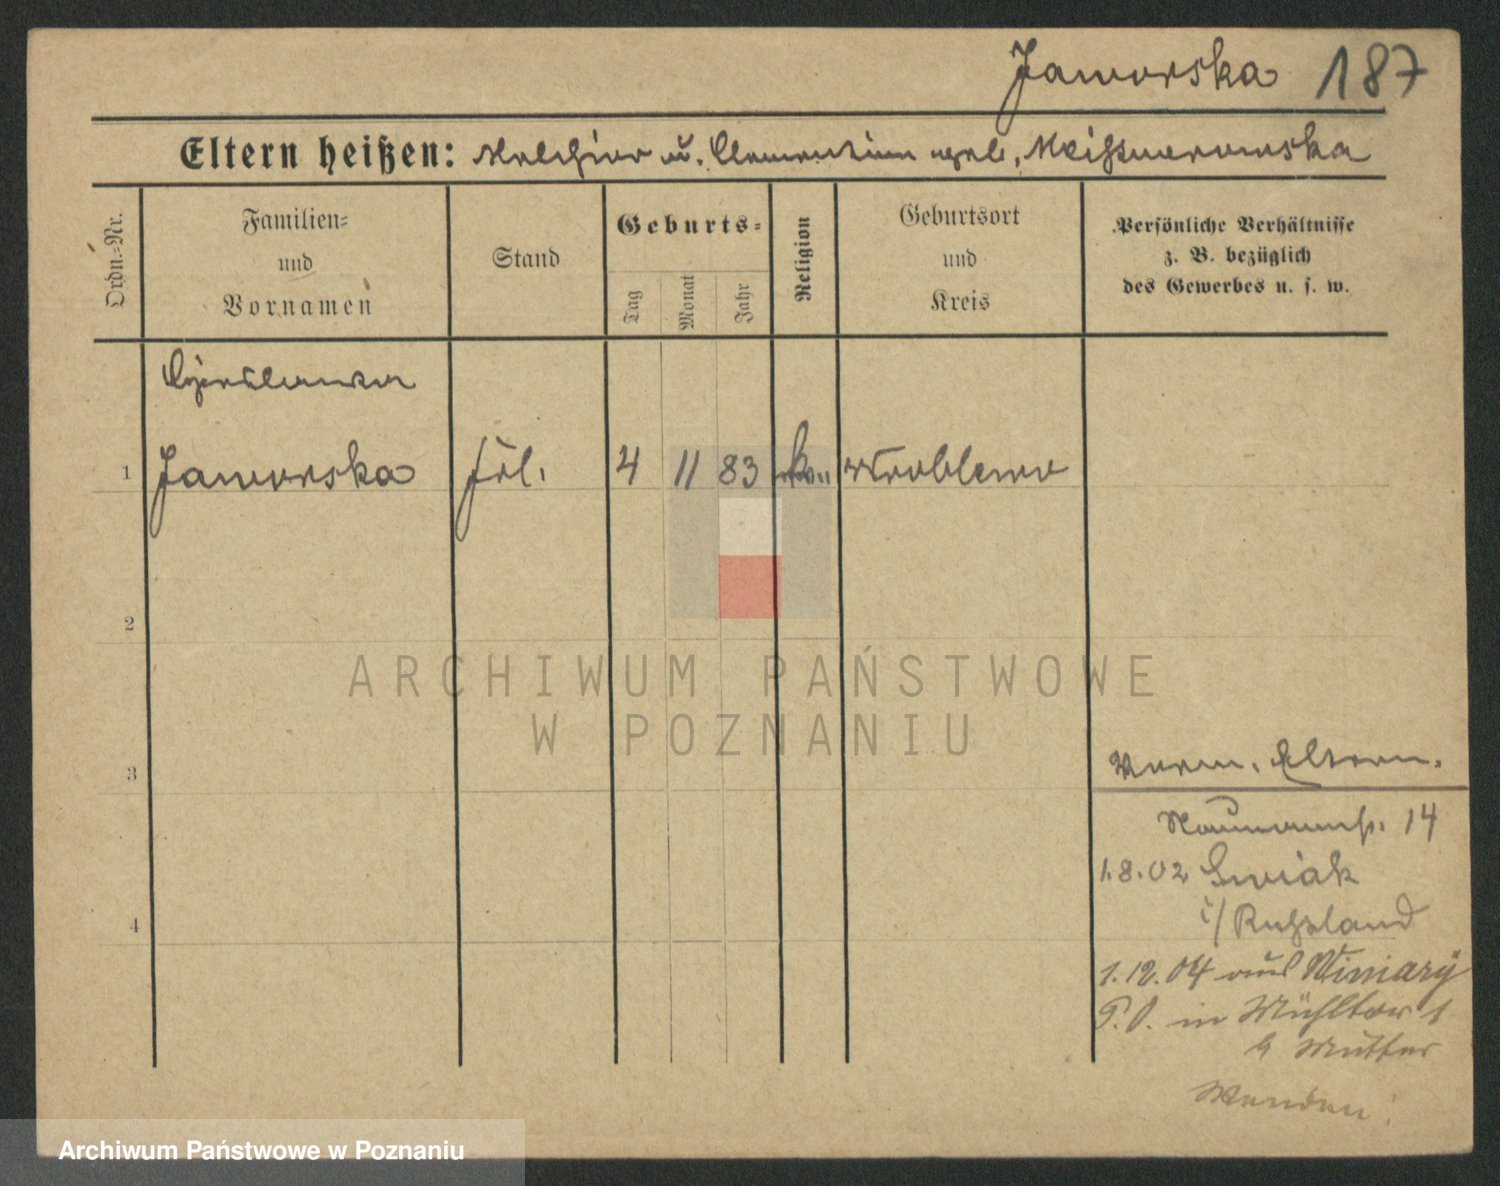 Jaworska 187
Eltern heißen: Melchior u. Clementine geb.
Ordn.-Nr.
Familien-
und
Vornamen
Stand
Geburts-
Tag
Monat
Jahr
Religion
Geburtsort
und
Kreis
Persönliche Verhältnisse
z. B. bezüglich
des Gewerbes u. s. w.
1 Jaworska frl. 4 11 83 Wroblewo
2
ARCHIWUM PAŃSTWOWE
W POZNANIU
3
Verm. Eltern.
Naumannstr. 14
1.8.02
i/ Russland
4
1.12.04 aus Winiary
in Mühltor 1
b Mutter
Wenden!
Archiwum Państwowe w Poznaniu